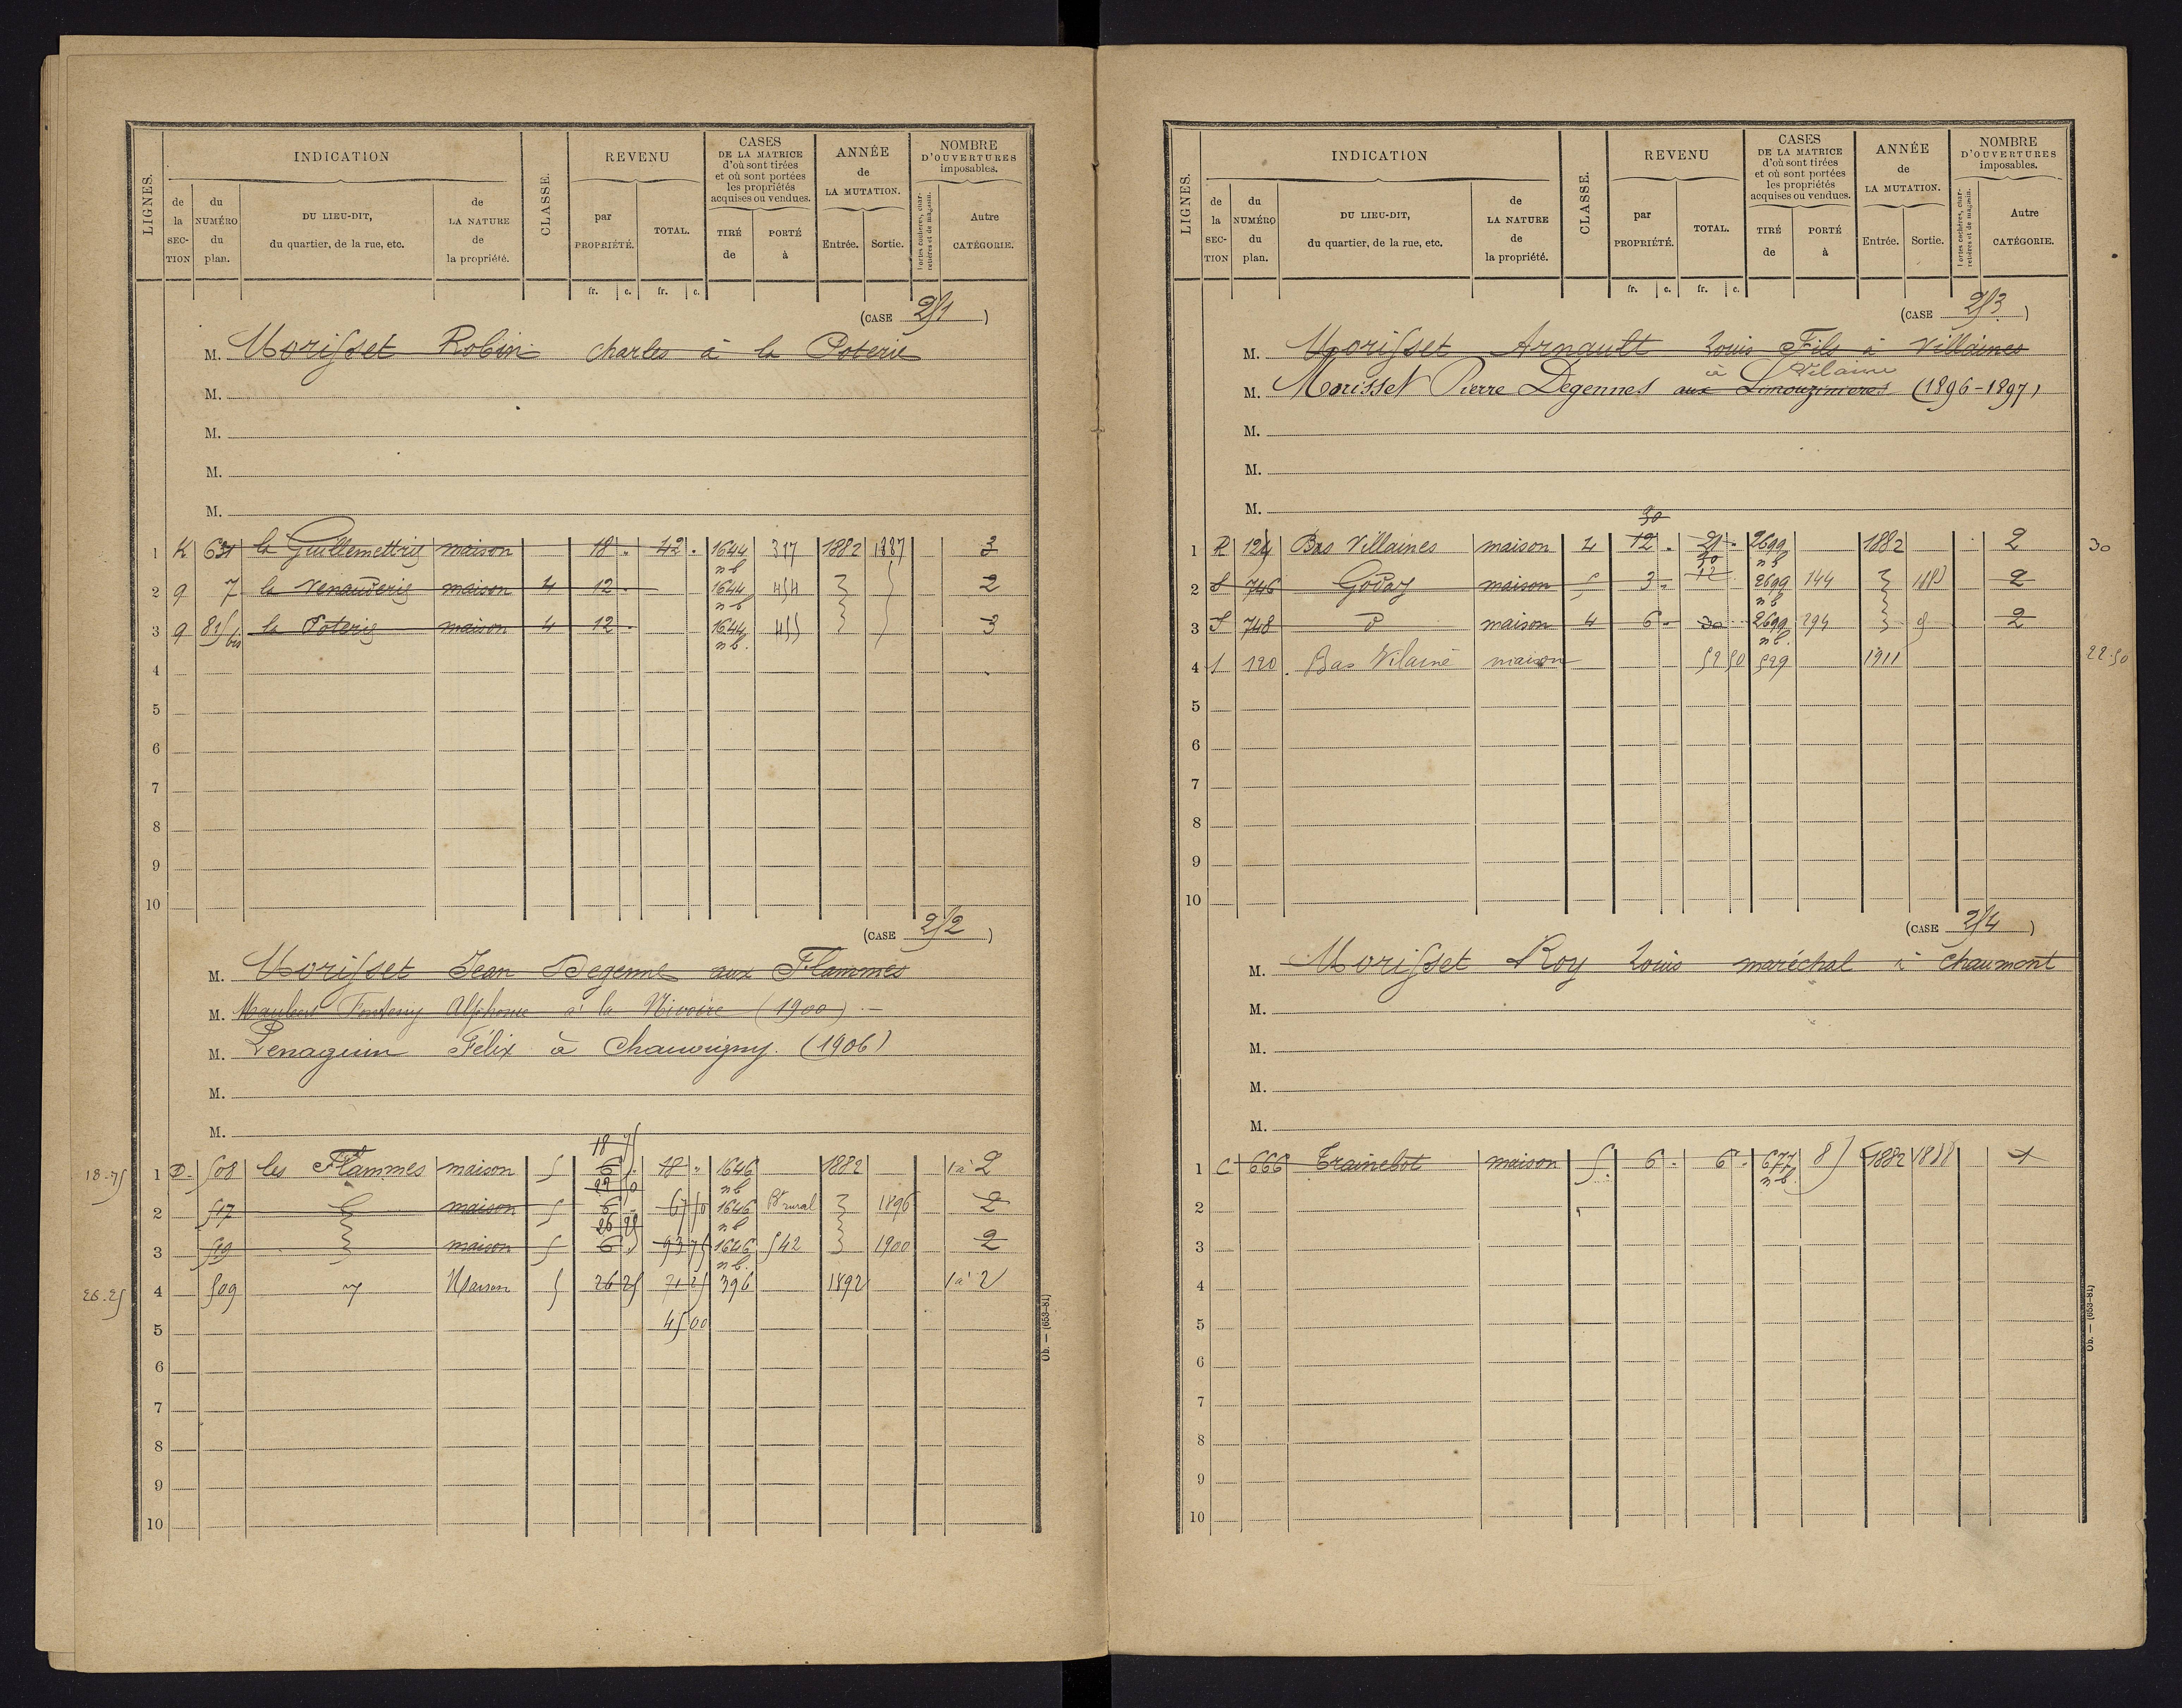 LIGNES.
INDICATION
de la SECTION
du NUMÉRO du plan.
DU LIEU-DIT, du quartier, de la rue, etc.
de LA NATURE de la propriété.
CLASSE.
REVENU
par PROPRIÉTÉ.
TOTAL.
CASES DE LA MATRICE d'où sont tirées et où sont portées les propriétés acquises ou vendues.
TIRÉ de
PORTÉ à
ANNÉE de LA MUTATION.
Entrée. Sortie.
NOMBRE D'OUVERTURES imposables.
Portes cochères, charretières et de magasin.
Autre CATÉGORIE.
fr. c. fr. c.
(CASE 251 )
M. Morisset Robin charles à la Poterie
M.
M.
M.
M.
1 K 631 la Guillemettrie maison 18 . 42 . 1644 317 1882 1887 3
nb
2 9 7 la renauderie maison 4 12 . 1644 454 2
nb
3 9 815 bis la Poterie maison 4 12 . 1644 455 3
nb.
4
5
6
7
8
9
10
(CASE 252 )
M. Morisset Jean Degenne aux Flammes
M. Maubert Alphonse à la (1900)
M. Penaguin Félix à Chauvigny. (1906)
M.
M.
18 75
18.75 1 D. 508 les Flammes maison 5 6 . 18 " 1646 1882 1 à 2
22 50 nb
2 517 maison 5 6 67 50 1646 rural 1896 2
26 25 nb
3 519 maison 5 6 93 75 1646 542 1900 2
nb.
26.25 4 509 Maison 5 26 25 71 25 396 1892 1 à 2
5 45 00
6
7
8
9
10
Ob. — (653-81)
LIGNES.
INDICATION
de la SECTION
du NUMÉRO du plan.
DU LIEU-DIT, du quartier, de la rue, etc.
de LA NATURE de la propriété.
CLASSE.
REVENU
par PROPRIÉTÉ.
TOTAL.
CASES DE LA MATRICE d'où sont tirées et où sont portées les propriétés acquises ou vendues.
TIRÉ de
PORTÉ à
ANNÉE de LA MUTATION.
Entrée. Sortie.
NOMBRE D'OUVERTURES imposables.
Portes cochères, charretières et de magasin.
Autre CATÉGORIE.
fr. c. fr. c.
(CASE 253 )
M. Morisset Arnault Louis Fils à Villaines
à Vilaine
M. Morisset Pierre Degennes aux Limouzinieres (1896-1897)
M.
M.
M.
30
1 R 124 Bas Villaines maison 4 12 . 21 . 2699 1882 2 30
30 nb
2 S 746 Goday maison 5 3 . 12 2699 144 2
nb
3 S 748 d maison 4 6 . 30 2699 294 2
nb.
4 120 Bas Vilaine maison 52 50 529 1911 22.50
5
6
7
8
9
10
(CASE 254 )
M. Morisset Roy Louis maréchal à Chaumont
M.
M.
M.
M.
1 C 666 Trainebot maison 5 . 6 . 6 . 677 85 1882 1888 1
nb.
2
3
4
5
6
7
8
9
10
Ob. — (653-81)